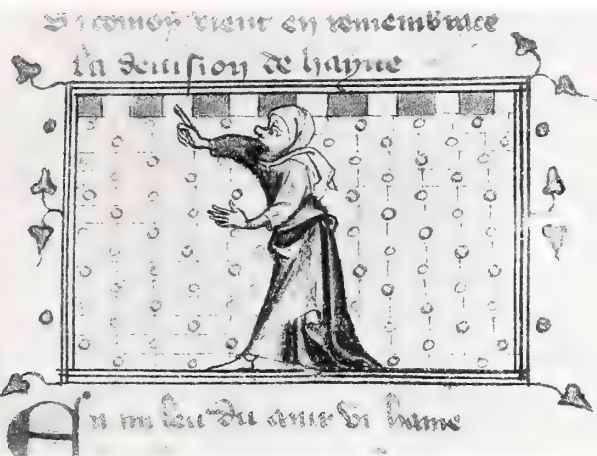 Si comen vient en remembrance
La deuision de hayne
En mi leu du mur vi haine